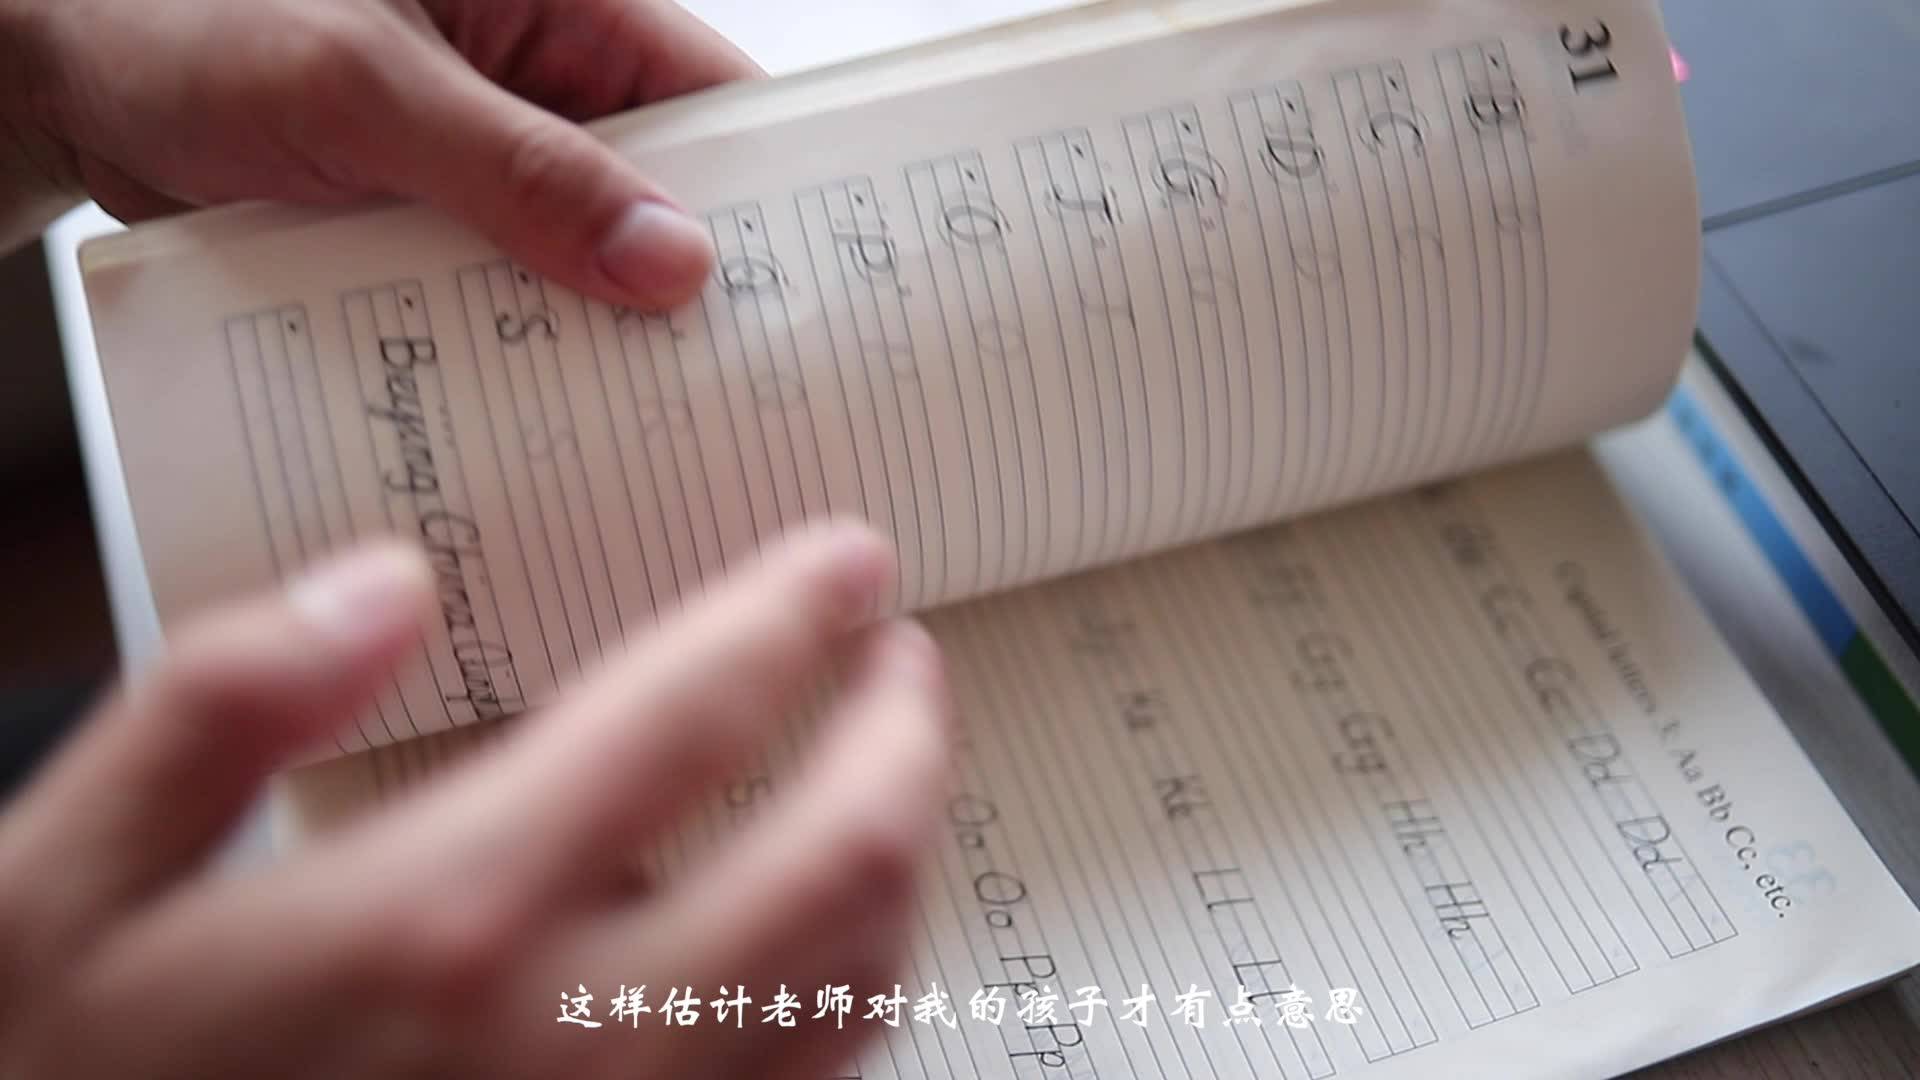 31
B
C
D
G
J
O
P
Q
S
Beijing China
Capital letters, 3. Aa Bb Cc, etc.
Cc Cc Dd Dd
Gg Gg Hh Hh
Kk Kk Ll Ll
Oo Oo Pp Pp
S
33
这样估计老师对我的孩子才有点意思